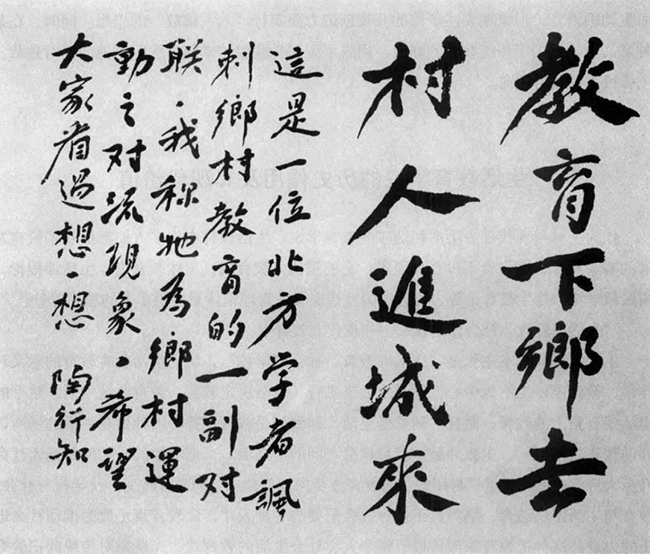 教育下鄉去
村人進城來
這是一位北方学者諷
刺鄉村教育的一副对
联．我称牠為鄉村運
動之对流現象．希望
大家看过想想 陶行知